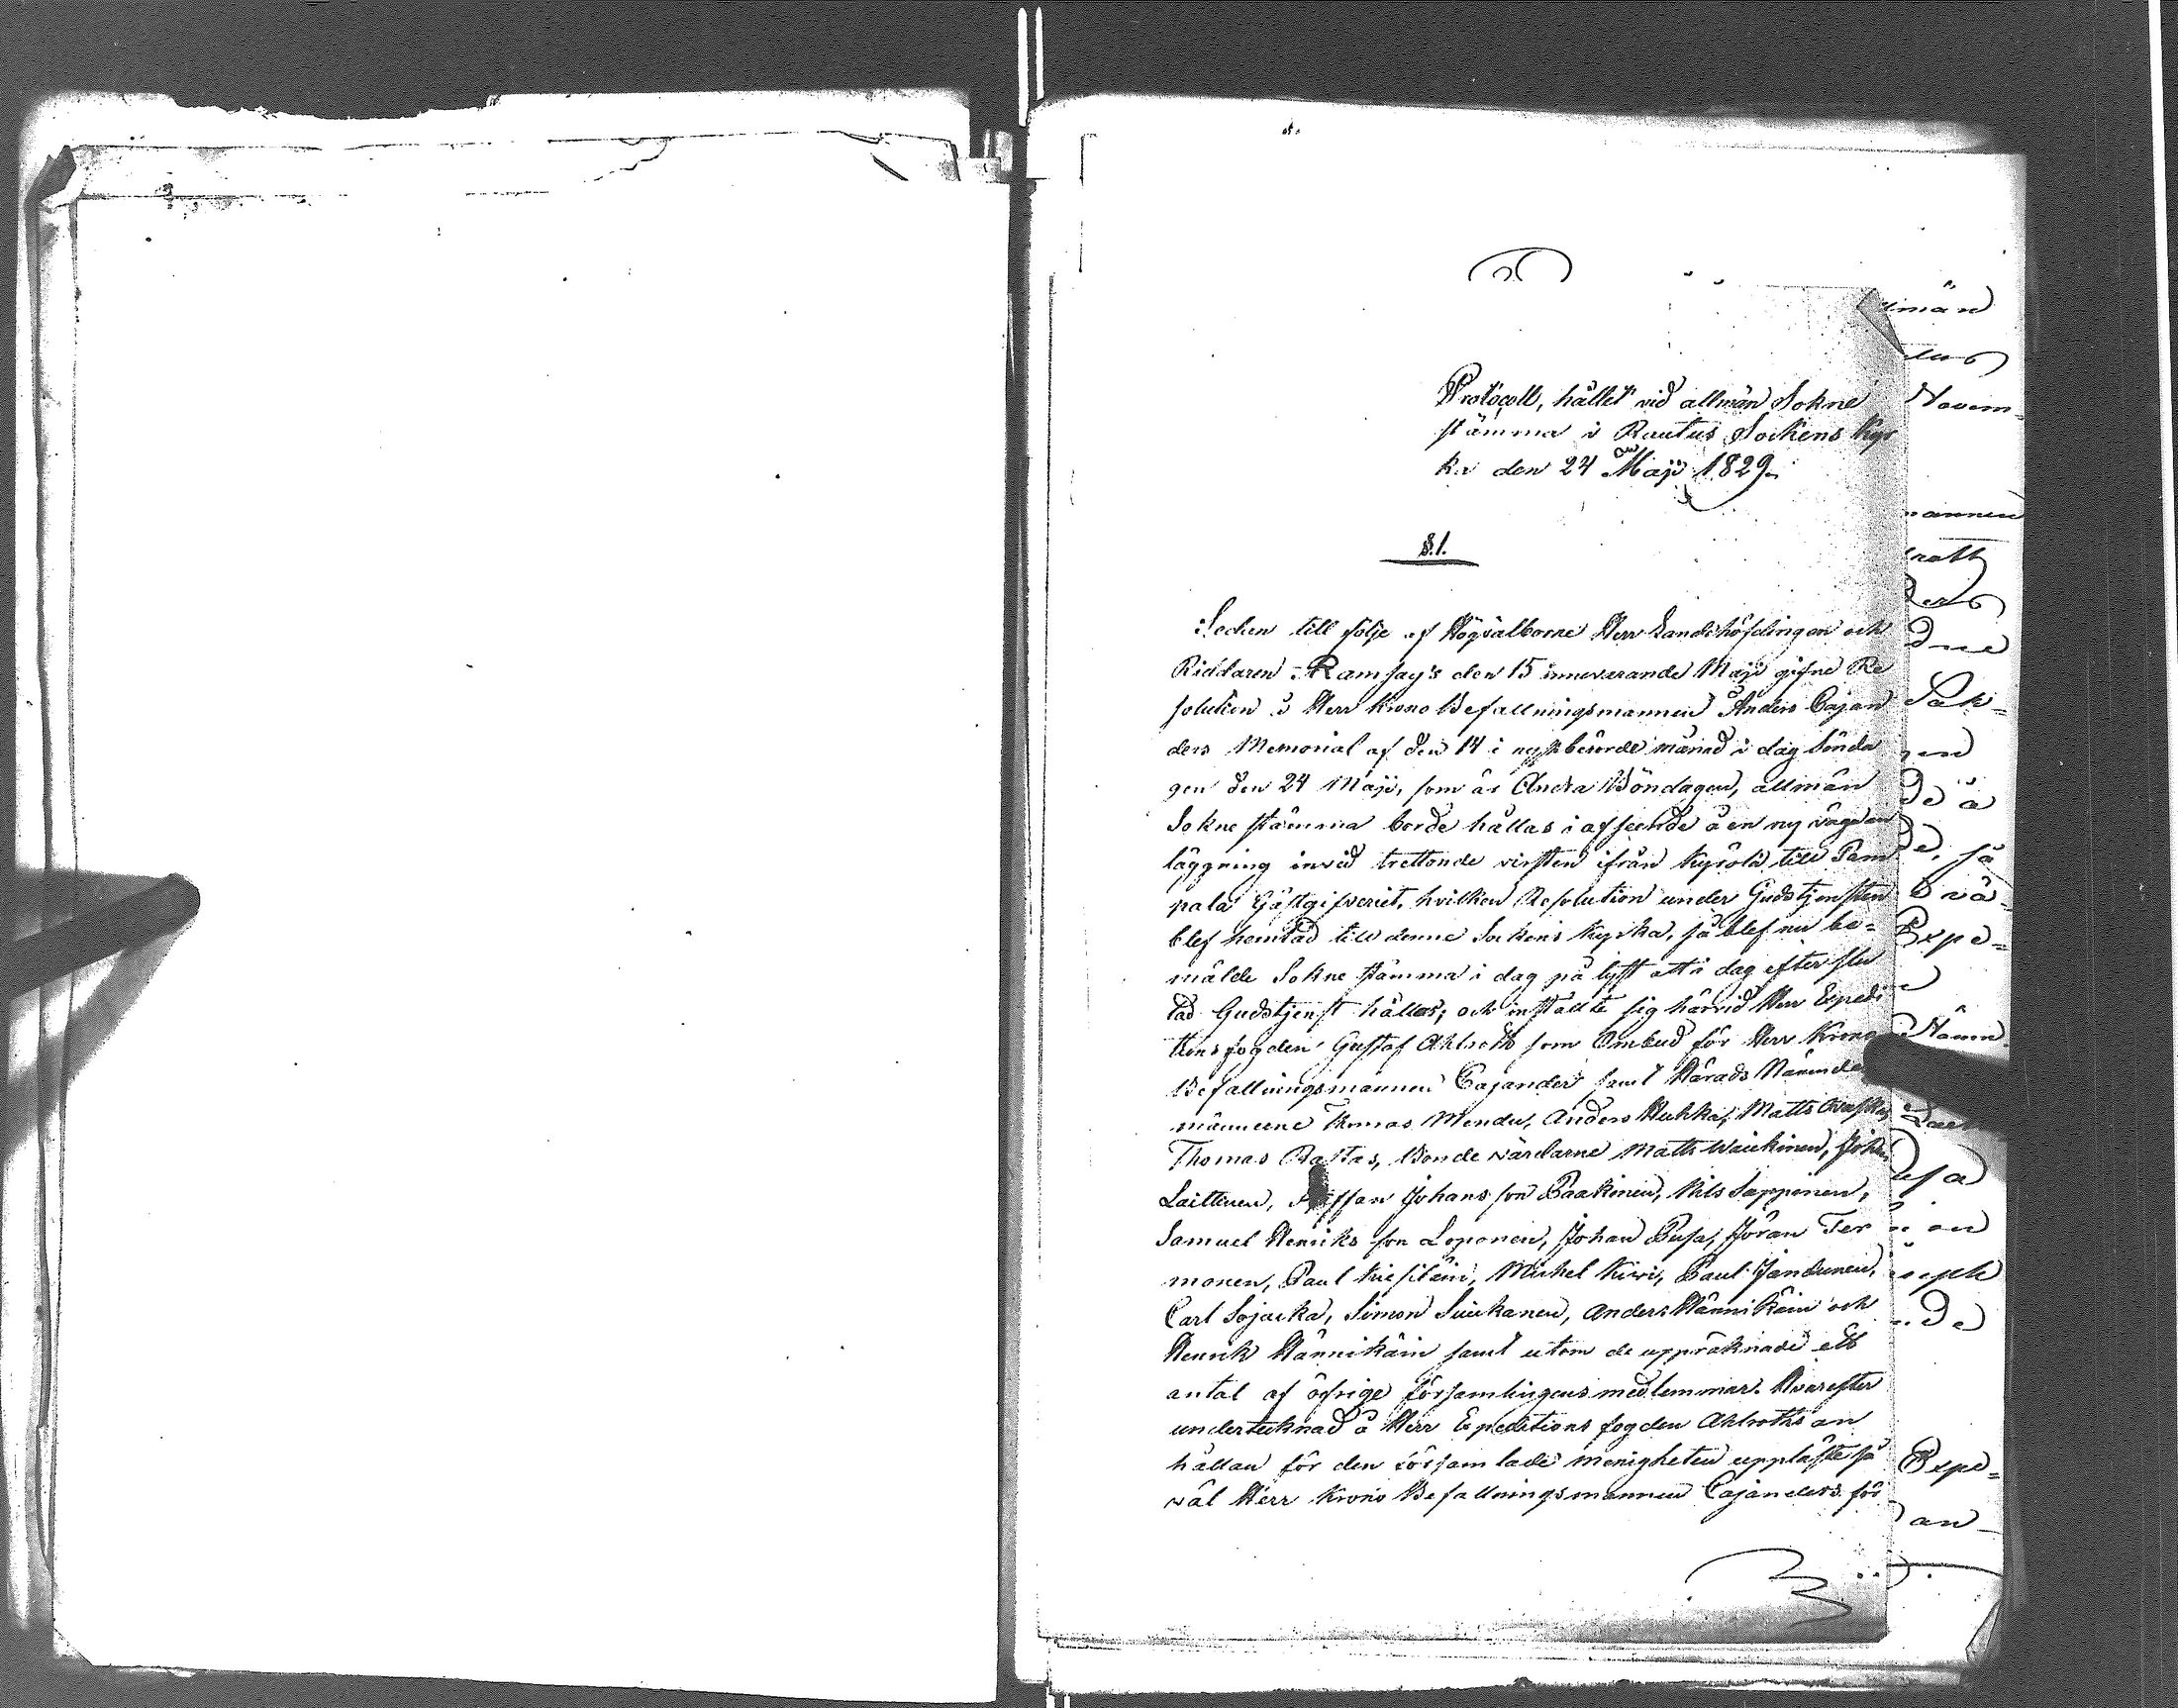 Protocoll, hållet vid allmän Sokne
stämma i Rautus Sockens Kyr
ka den 24 Maji 1829.
§.1.
Sedan till följe af Högvälborne Herr Landshöfdingen och
Riddaren Ramsay's den 15 innevarande Maji gifne Re
solution å Herr Krono Befallningsmannen Anders Cajan
ders Memorial af den 14 i nyssberörde månad i dag Sönda
gen den 24 Maji, som är Andra Böndagen, allmän
Sokne stämma borde hållas i afseende å en ny vägan
läggning invid trettonde virsten ifrån Kyrölä till Pam
pala Gästgifveriet, hvilken Resolution under Gudstjensten
blef hemtad till denne Sockens Kyrka, så blef nu be=
mälde Sokne stämma i dag på lyst att i dag efter slu
tad Gudstjenst hållas; och inställte sig härvid Herr Expedi
tions fogden Gustaf Ahlroth som Ombud för Herr Krono
Befallningsmannen Cajander samt Härads Nämnde
männerne Thomas Mondu, Anders Hukka, Matts
Thomas Rastas, Bonde värdarne Matts Waickinen, Johan
Laitinen, Staffan Johans son Paakinen, Nils Sapponen,
Samuel Henriks son Loponen, Johan Pusa, Jöran Ter
monen, Paul Kiesiläin, Michel Kiwi, Paul Jandunen,
Carl Sojacka, Simon Suickanen, Anders Hännikäin och
Henrik Hännikäin samt utom de uppräknade ett
antal af öfrige församlingens medlemmar. Hvarefter
undertecknad å Herr Expeditions fogden Ahlroths an
hållan för den församlade menigheten uppläste så
wäl Herr Krono Befallningsmannen Cajanders för
män
Novem=
mannen
Sak=
så
Expe=
Nämn
Expe=
an